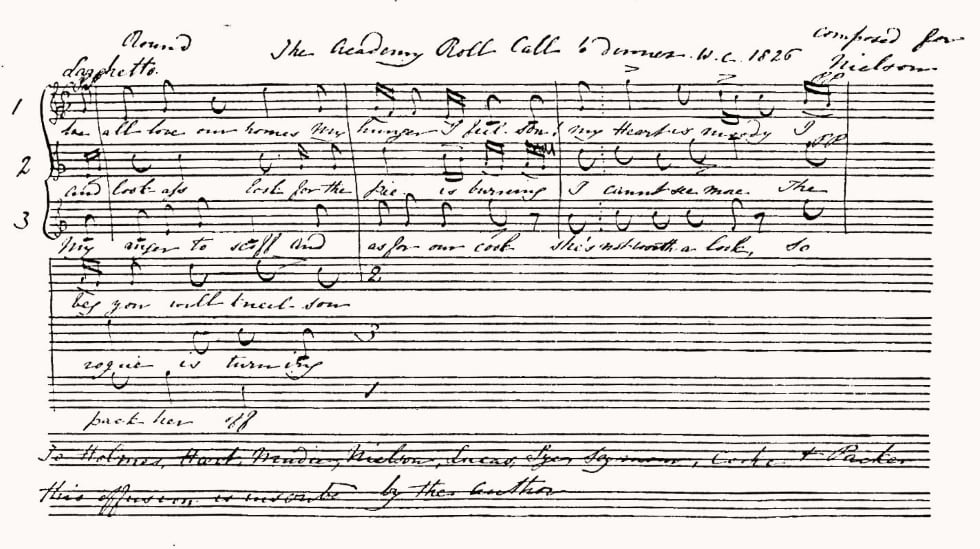 Round
The Academy Roll Call to dinner. W.C. 1826
composed for
Nielson
Larghetto.
1
we all love our homes My hunger I feel son! my Heart is moody I
2
and look ass look for the fire is burning I cannt see mae The
3
My anger to scoff and as for our cook she's not worth a lock, so
beg you will kneel son
2
rogue is turning
3
pack her off
1
To Holmes, Hart, Mudie, Nielson, Lucas, Seymour, Cooke & Packer
this effusion is inscribed by the author